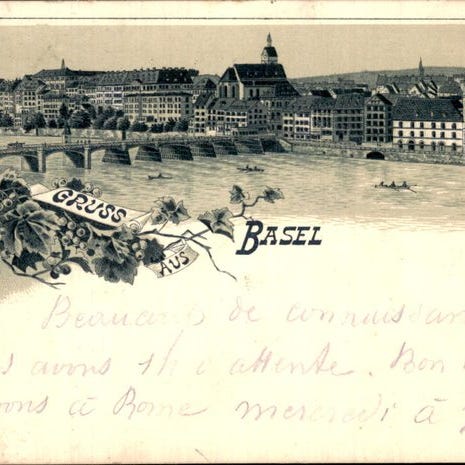 GRUSS
AUS
BASEL
Beaucoup de connaissan
s avons 1h d'attente. Bon
ons à Rome mercredi à